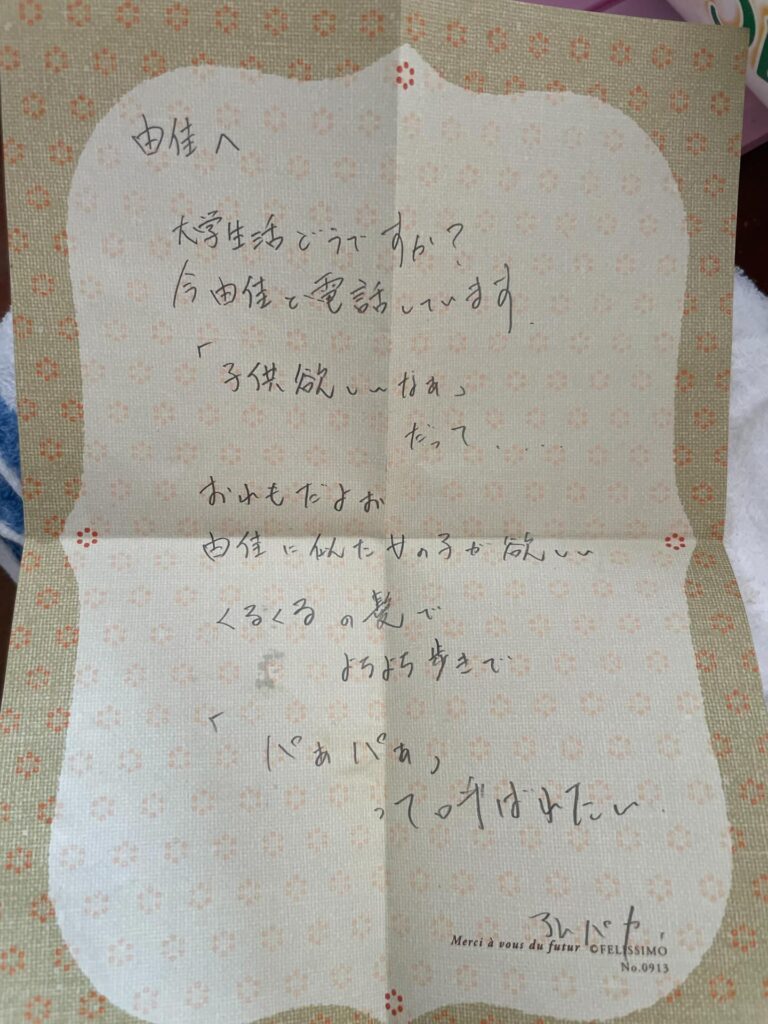 由佳へ
大学生活どうですか?
今由佳と電話しています.
「子供欲しいなぁ」
だって.....
おれもだよお
由佳に似た女の子が欲しい
くるくるの髪で
よちよち歩きで
「パぁパぁ」
って呼ばれたい.
Merci à vous du futur ©FELISSIMO
No.0913